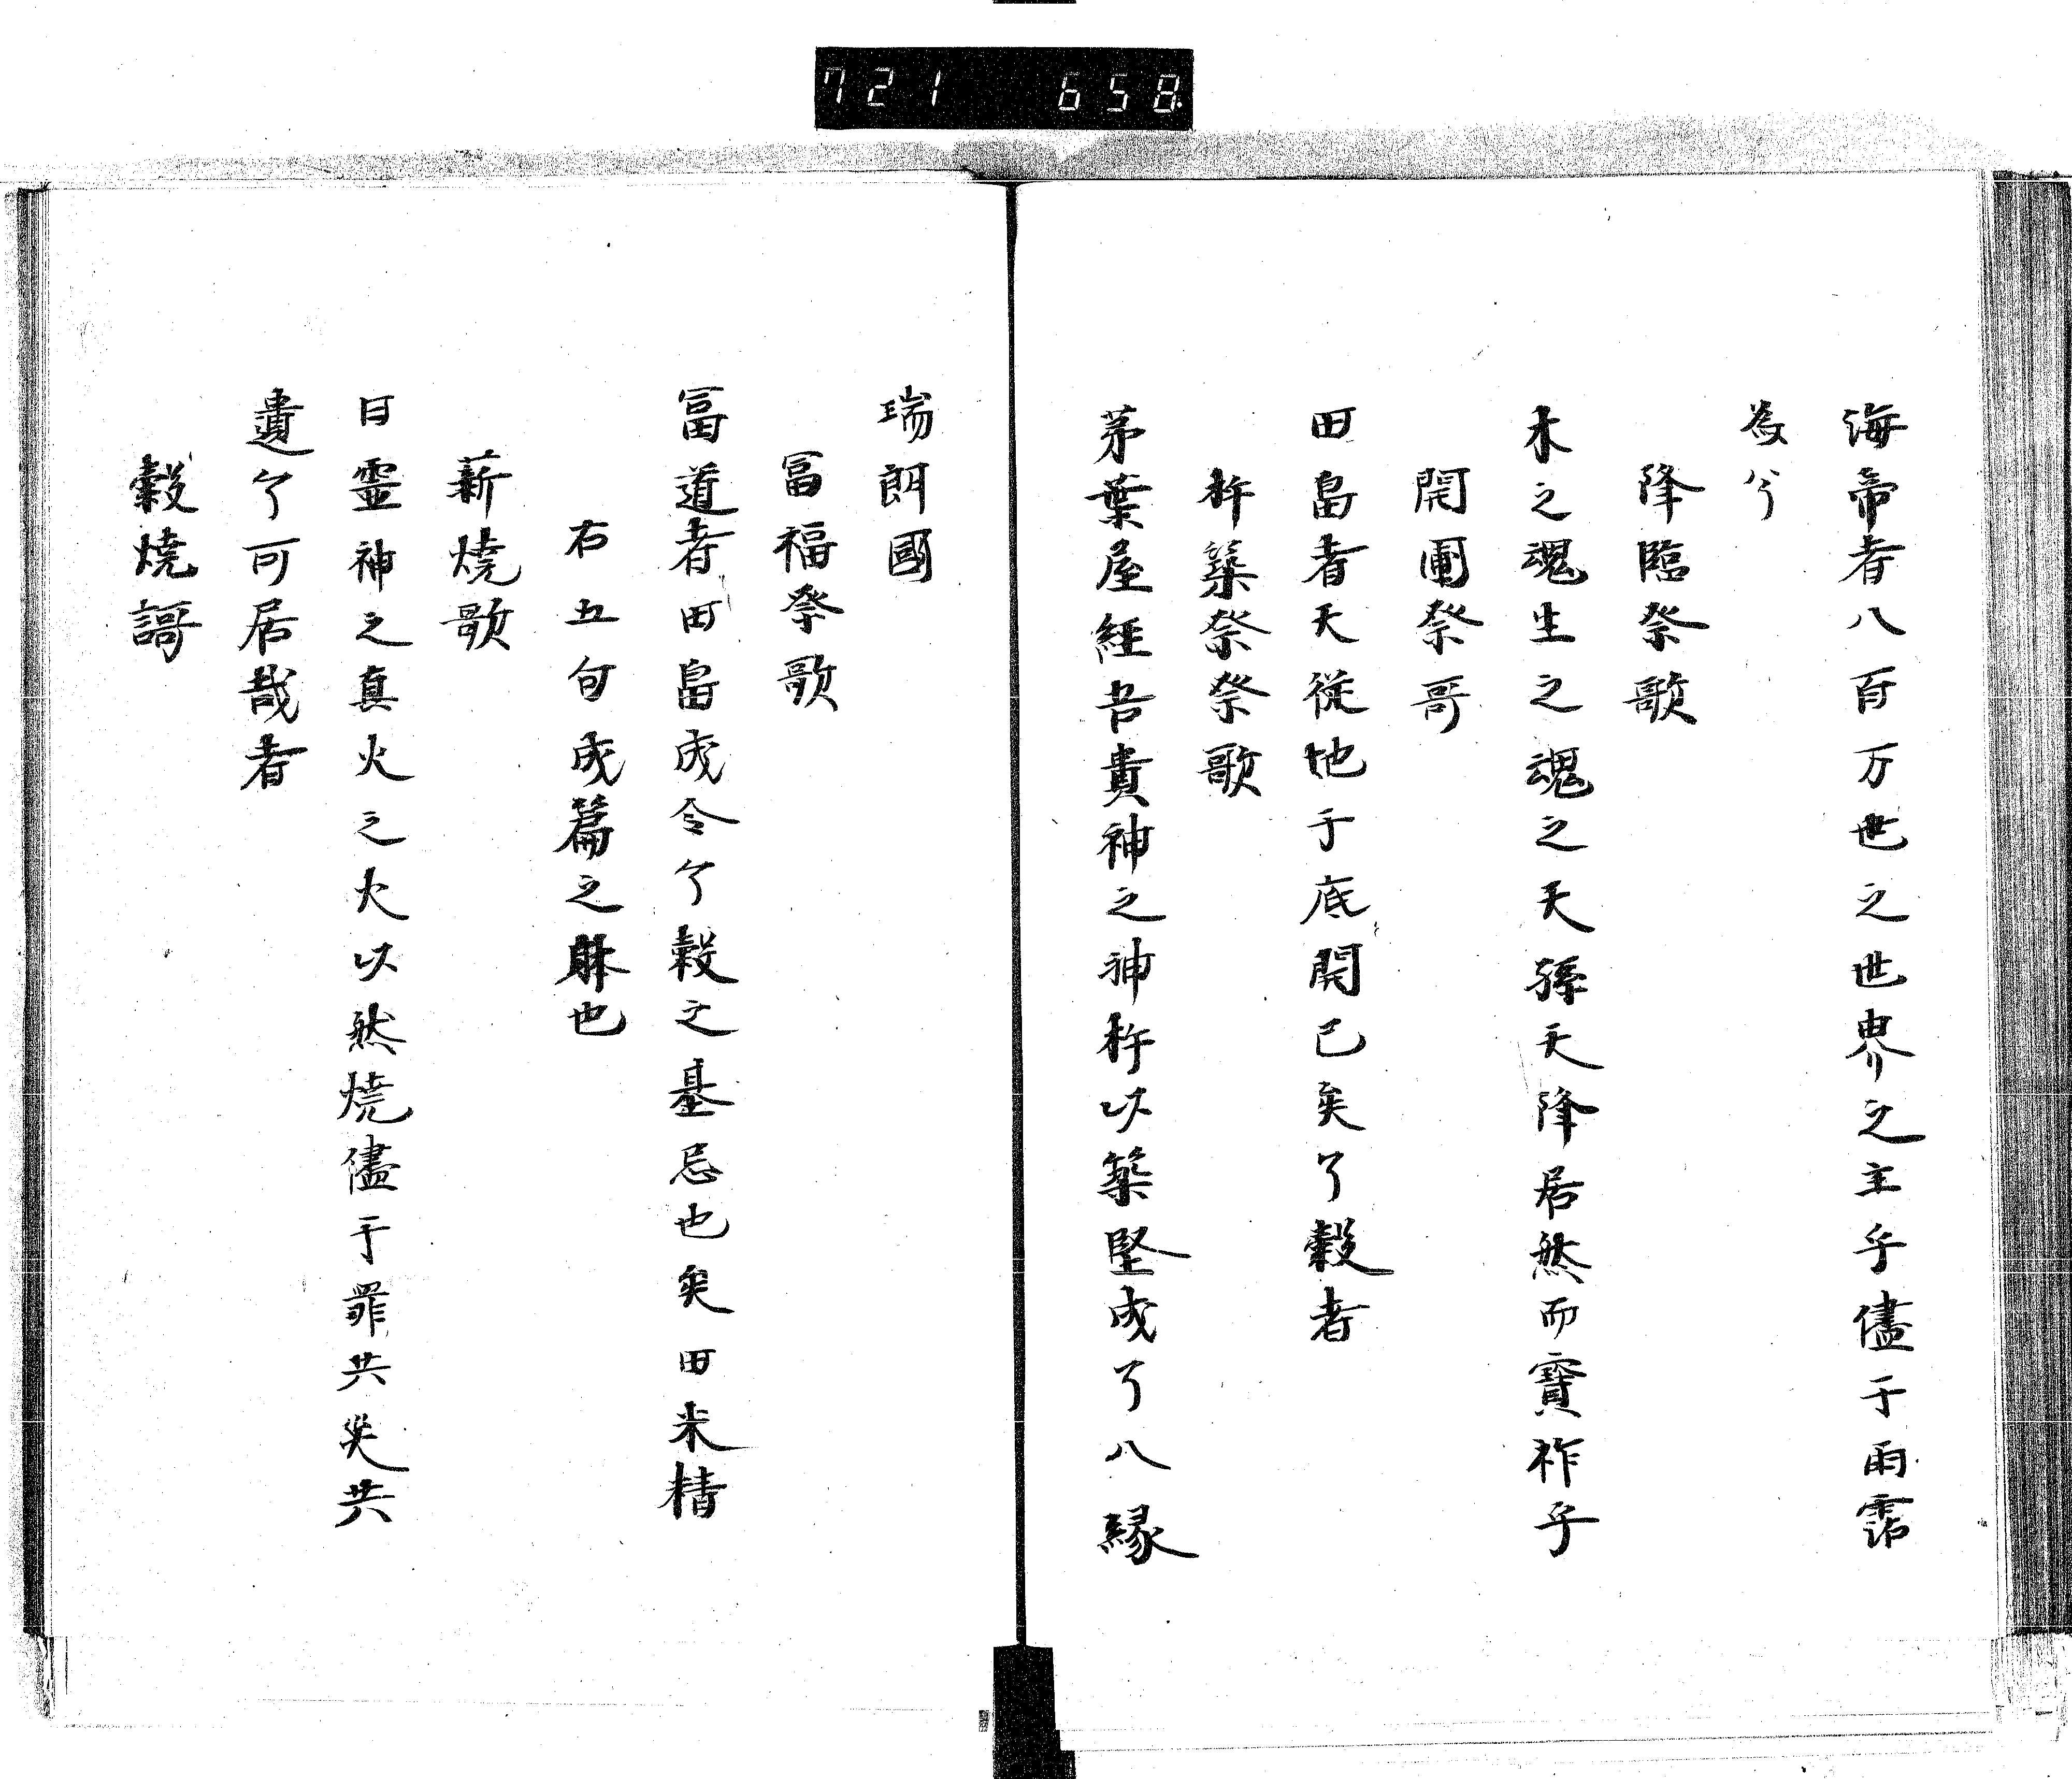 721 658
海帝者八百万世之世界之主乎儘于雨露
為兮
降臨祭歌
木之魂生之魂之天孫天降居然而寳祚乎
開圃祭哥
田畠者天従地于底開已矣了穀者
杵築祭祭歌
茅葉屋経吾貴神之神杵以築堅成了八縁
瑞朗國
冨福祭歌
冨道者田畠成令兮穀之基忌也矣田米精
右五句成篇之躰也
薪燒歌
日靈神之真火之火以然燒儘于罪共矣共
遺兮可居哉者
穀燒謌